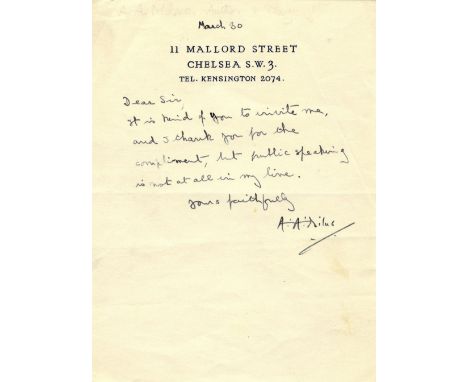 March 30
11 MALLORD STREET
CHELSEA S.W. 3.
TEL. KENSINGTON 2074.
Dear Sir,
It is kind of you to invite me,
and I thank you for the
compliment, but public speaking
is not at all in my line.
Yours faithfully
A.A. Milne